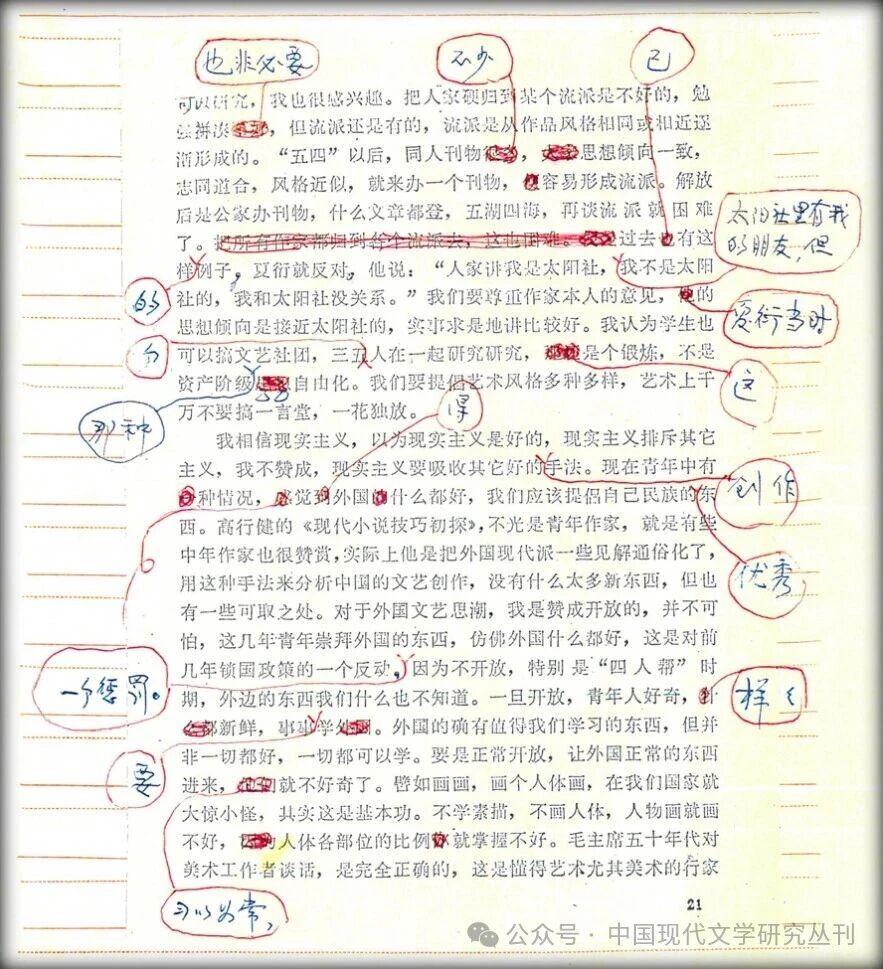 也非必要
不少
已
可以研究，我也很感兴趣。把人家硬归到某个流派是不好的，勉
强拼凑，但流派还是有的，流派是从作品风格相同或相近逐
渐形成的。“五四”以后，同人刊物，思想倾向一致，
志同道合，风格近似，就来办一个刊物，容易形成流派。解放
后是公家办刊物，什么文章都登，五湖四海，再谈流派就困难
了。把所有作家都归到各个流派去，这也困难。过去有这
样例子，夏衍就反对，他说：“人家讲我是太阳社，我不是太阳
社的，我和太阳社没关系。”我们要尊重作家本人的意见，的
思想倾向是接近太阳社的，实事求是地讲比较好。我认为学生也
可以搞文艺社团，三五人在一起研究研究，是个锻炼，不是
资产阶级自由化。我们要提倡艺术风格多种多样，艺术上千
万不要搞一言堂，一花独放。
太阳社里有我
的朋友，但
的
夏衍当时
个
这
那种
得
我相信现实主义，以为现实主义是好的，现实主义排斥其它
主义，我不赞成，现实主义要吸收其它好的手法。现在青年中有
种情况，感觉到外国什么都好，我们应该提倡自己民族的东
西。高行健的《现代小说技巧初探》，不光是青年作家，就是有些
中年作家也很赞赏，实际上他是把外国现代派一些见解通俗化了，
用这种手法来分析中国的文艺创作，没有什么太多新东西，但也
有一些可取之处。对于外国文艺思潮，我是赞成开放的，并不可
怕，这几年青年崇拜外国的东西，仿佛外国什么都好，这是对前
几年锁国政策的一个反动，因为不开放，特别是“四人帮”时
期，外边的东西我们什么也不知道。一旦开放，青年人好奇，什
么都新鲜，事事学外国。外国的确有值得我们学习的东西，但并
非一切都好，一切都可以学。要是正常开放，让外国正常的东西
进来，就不好奇了。譬如画画，画个人体画，在我们国家就
大惊小怪，其实这是基本功。不学素描，不画人体，人物画就画
不好，因为人体各部位的比例就掌握不好。毛主席五十年代对
美术工作者谈话，是完全正确的，这是懂得艺术尤其美术的行家
创作
优秀
一个惩罚。
样样
要
习以为常，
21
公众号·中国现代文学研究丛刊